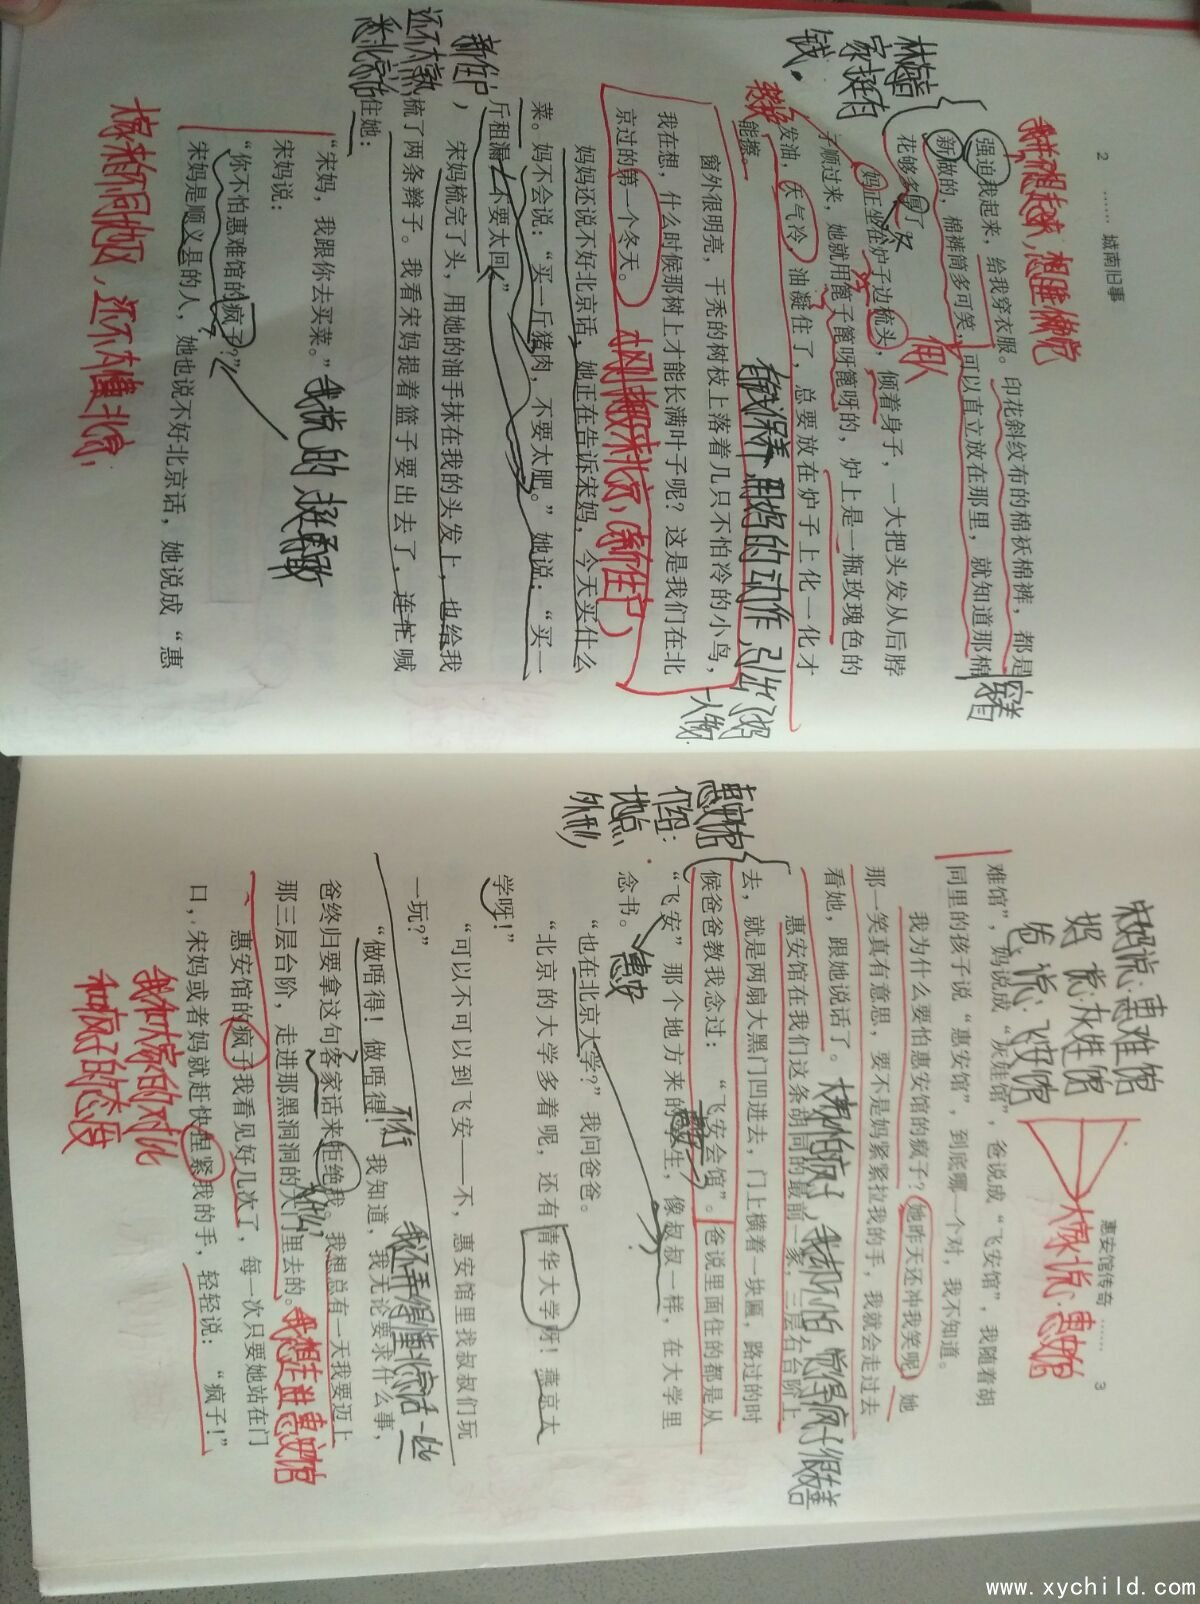 2 …… 城南旧事
我并不想起来，想睡懒觉
强迫我起来，给我穿衣服。印花斜纹布的棉袄棉裤，都是
新做的，棉裤筒多可笑，可以直立放在那里，就知道那棉
花够多厚了。
穿着
林海音
家挺有
钱。
妈正坐在炉子边梳头，倾着身子，一大把头发从后脖
子顺过来，她就用篦子篦呀篦呀的，炉上是一瓶玫瑰色的
发油，天气冷，油凝住了，总要放在炉子上化一化才
能擦。
有钱保养，用妈的动作，引出妈
人物
窗外很明亮，干秃的树枝上落着几只不怕冷的小鸟，
我在想，什么时候那树上才能长满叶子呢？这是我们在北
京过的第一个冬天。
刚搬来北京，新住户
妈妈还说不好北京话，她正在告诉宋妈，今天买什么
菜。妈不会说：“买一斤猪肉，不要太肥。”她说：“买一
斤租漏，不要太回。”
新住户，
还不太熟
悉北京话
宋妈梳完了头，用她的油手抹在我的头发上，也给我
梳了两条辫子。我看宋妈提着篮子要出去了，连忙喊
住她：
“宋妈，我跟你去买菜。”
我挺勇敢
宋妈说：
“你不怕惠难馆的疯子？”
宋妈是顺义县的人，她也说不好北京话，她说成“惠
还不懂北京，
惠安馆传奇 …… 3
宋妈说：惠难馆
妈说：灰娃馆
爸说：飞安馆
大家说：惠安馆
难馆”，妈说成“灰娃馆”，爸说成“飞安馆”，我随着胡
同里的孩子说“惠安馆”，到底哪一个对，我不知道。
我为什么要怕惠安馆的疯子？她昨天还冲我笑呢！她
那一笑真有意思，要不是妈紧紧拉我的手，我就会走过去
看她，跟她说话了。
大家怕的疯子，我却不怕 觉得疯子很友善
惠安馆
介绍：
地点
外形
惠安馆在我们这条胡同的最前一家，三层石台阶上
去，就是两扇大黑门凹进去，门上横着一块匾，路过的时
候爸爸教我念过：“飞安会馆”。爸说里面住的都是从
“飞安”那个地方来的学生，像叔叔一样，在大学里
念书。
惠安
“也在北京大学？”我问爸爸。
“北京的大学多着呢，还有清华大学呀！燕京大
学呀！”
“可以不可以到飞安—不，惠安馆里找叔叔们玩
一玩？”
我还弄得懂北京话一些
不行
“做唔得！做唔得！”我知道，我无论要求什么事，
爸终归要拿这句客家话来拒绝我。我想总有一天我要迈上
那三层台阶，走进那黑洞洞的大门里去的。
为什么
我想走进惠安馆
惠安馆的疯子我看见好几次了，每一次只要她站在门
口，宋妈或者妈就赶快捏紧我的手，轻轻说：“疯子！”
我和大家的对比
和疯子的态度
www.xychild.com